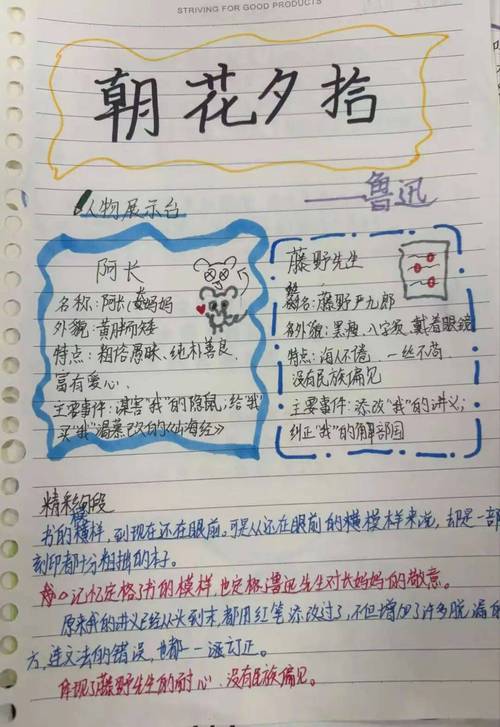 STRIVING FOR GOOD PRODUCTS
朝花夕拾
——鲁迅
人物展示台
阿长
名称:阿长,长妈妈
外貌:黄胖矮
特点:粗俗愚昧、纯朴善良、
富有爱心。
主要事件:谋害"我"的隐鼠;给"我"
买"我"渴慕已久的《山海经》
藤野先生
姓名:藤野严九郎
外貌:黑瘦、八字须、戴着眼镜
特点:诲人不倦、一丝不苟、
没有民族偏见
主要事件:添改"我"的讲义;
纠正"我"的解部图
精彩片段
书的模样,到现在还在眼前。可是从还在眼前的模样来说,却是一部
刻印都十分粗拙的本子。
记忆定格了书的模样,也定格了鲁迅先生对长妈妈的敬意。
原来我的讲义已经从头到末,都用红笔添改过了,不但增加了许多脱漏的
方,连文法的错误,也都一一订正。
体现了藤野先生的耐心、没有民族偏见。